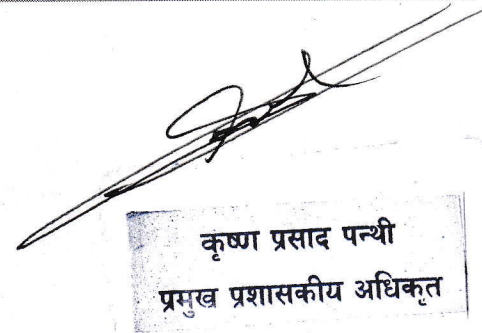 कृष्ण प्रसाद पन्थी
प्रमुख प्रशासकीय अधिकृत